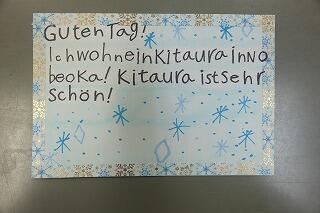 Guten Tag!
Ich wohne in Kitaura in No
beoka! Kitaura ist sehr
schön!